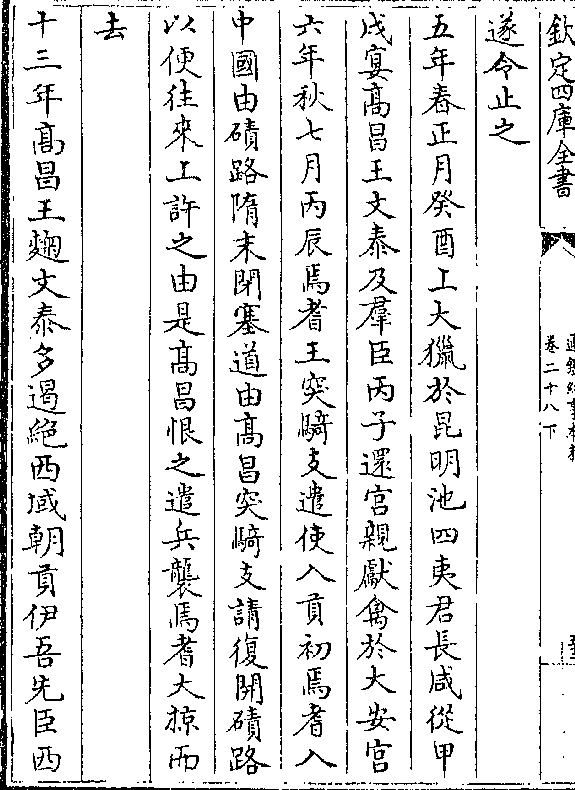 欽定四庫全書
卷二十八下
遂令止之
五年春正月癸酉上大獵於昆明池四夷君長咸從甲
戌宴髙昌王文泰及羣臣丙子還宫親獻禽於大安宫
六年秋七月丙辰焉耆王突騎支遣使入貢初焉耆入
中國由磧路隋末閉塞道由髙昌突騎支請復開磧路
以便往來上許之由是髙昌恨之遣兵襲焉耆大掠而
去
十三年髙昌王麴文泰多遏絶西域朝貢伊吾先臣西